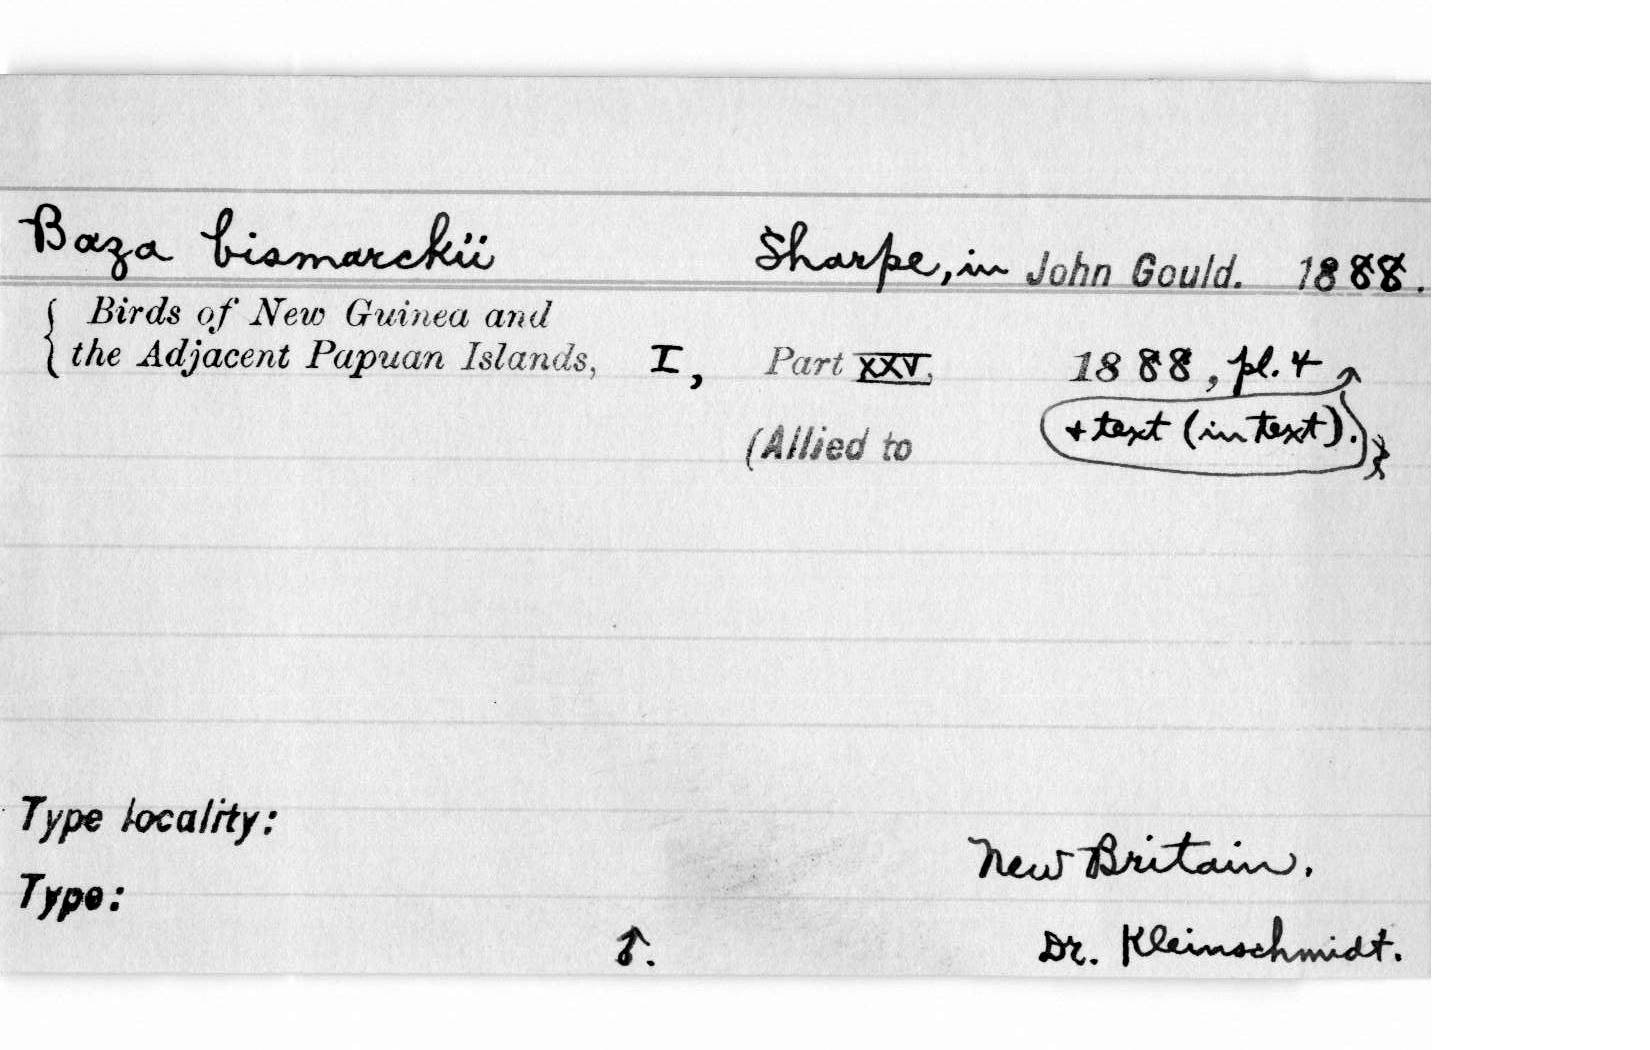 Baza bismarckii Sharpe, in John Gould. 1888.
Birds of New Guinea and
the Adjacent Papuan Islands, I, Part XXV, 1888, pl. 4
(Allied to + text (in text).
Type locality:
New Britain.
Type:
♂. Dr. Kleinschmidt.